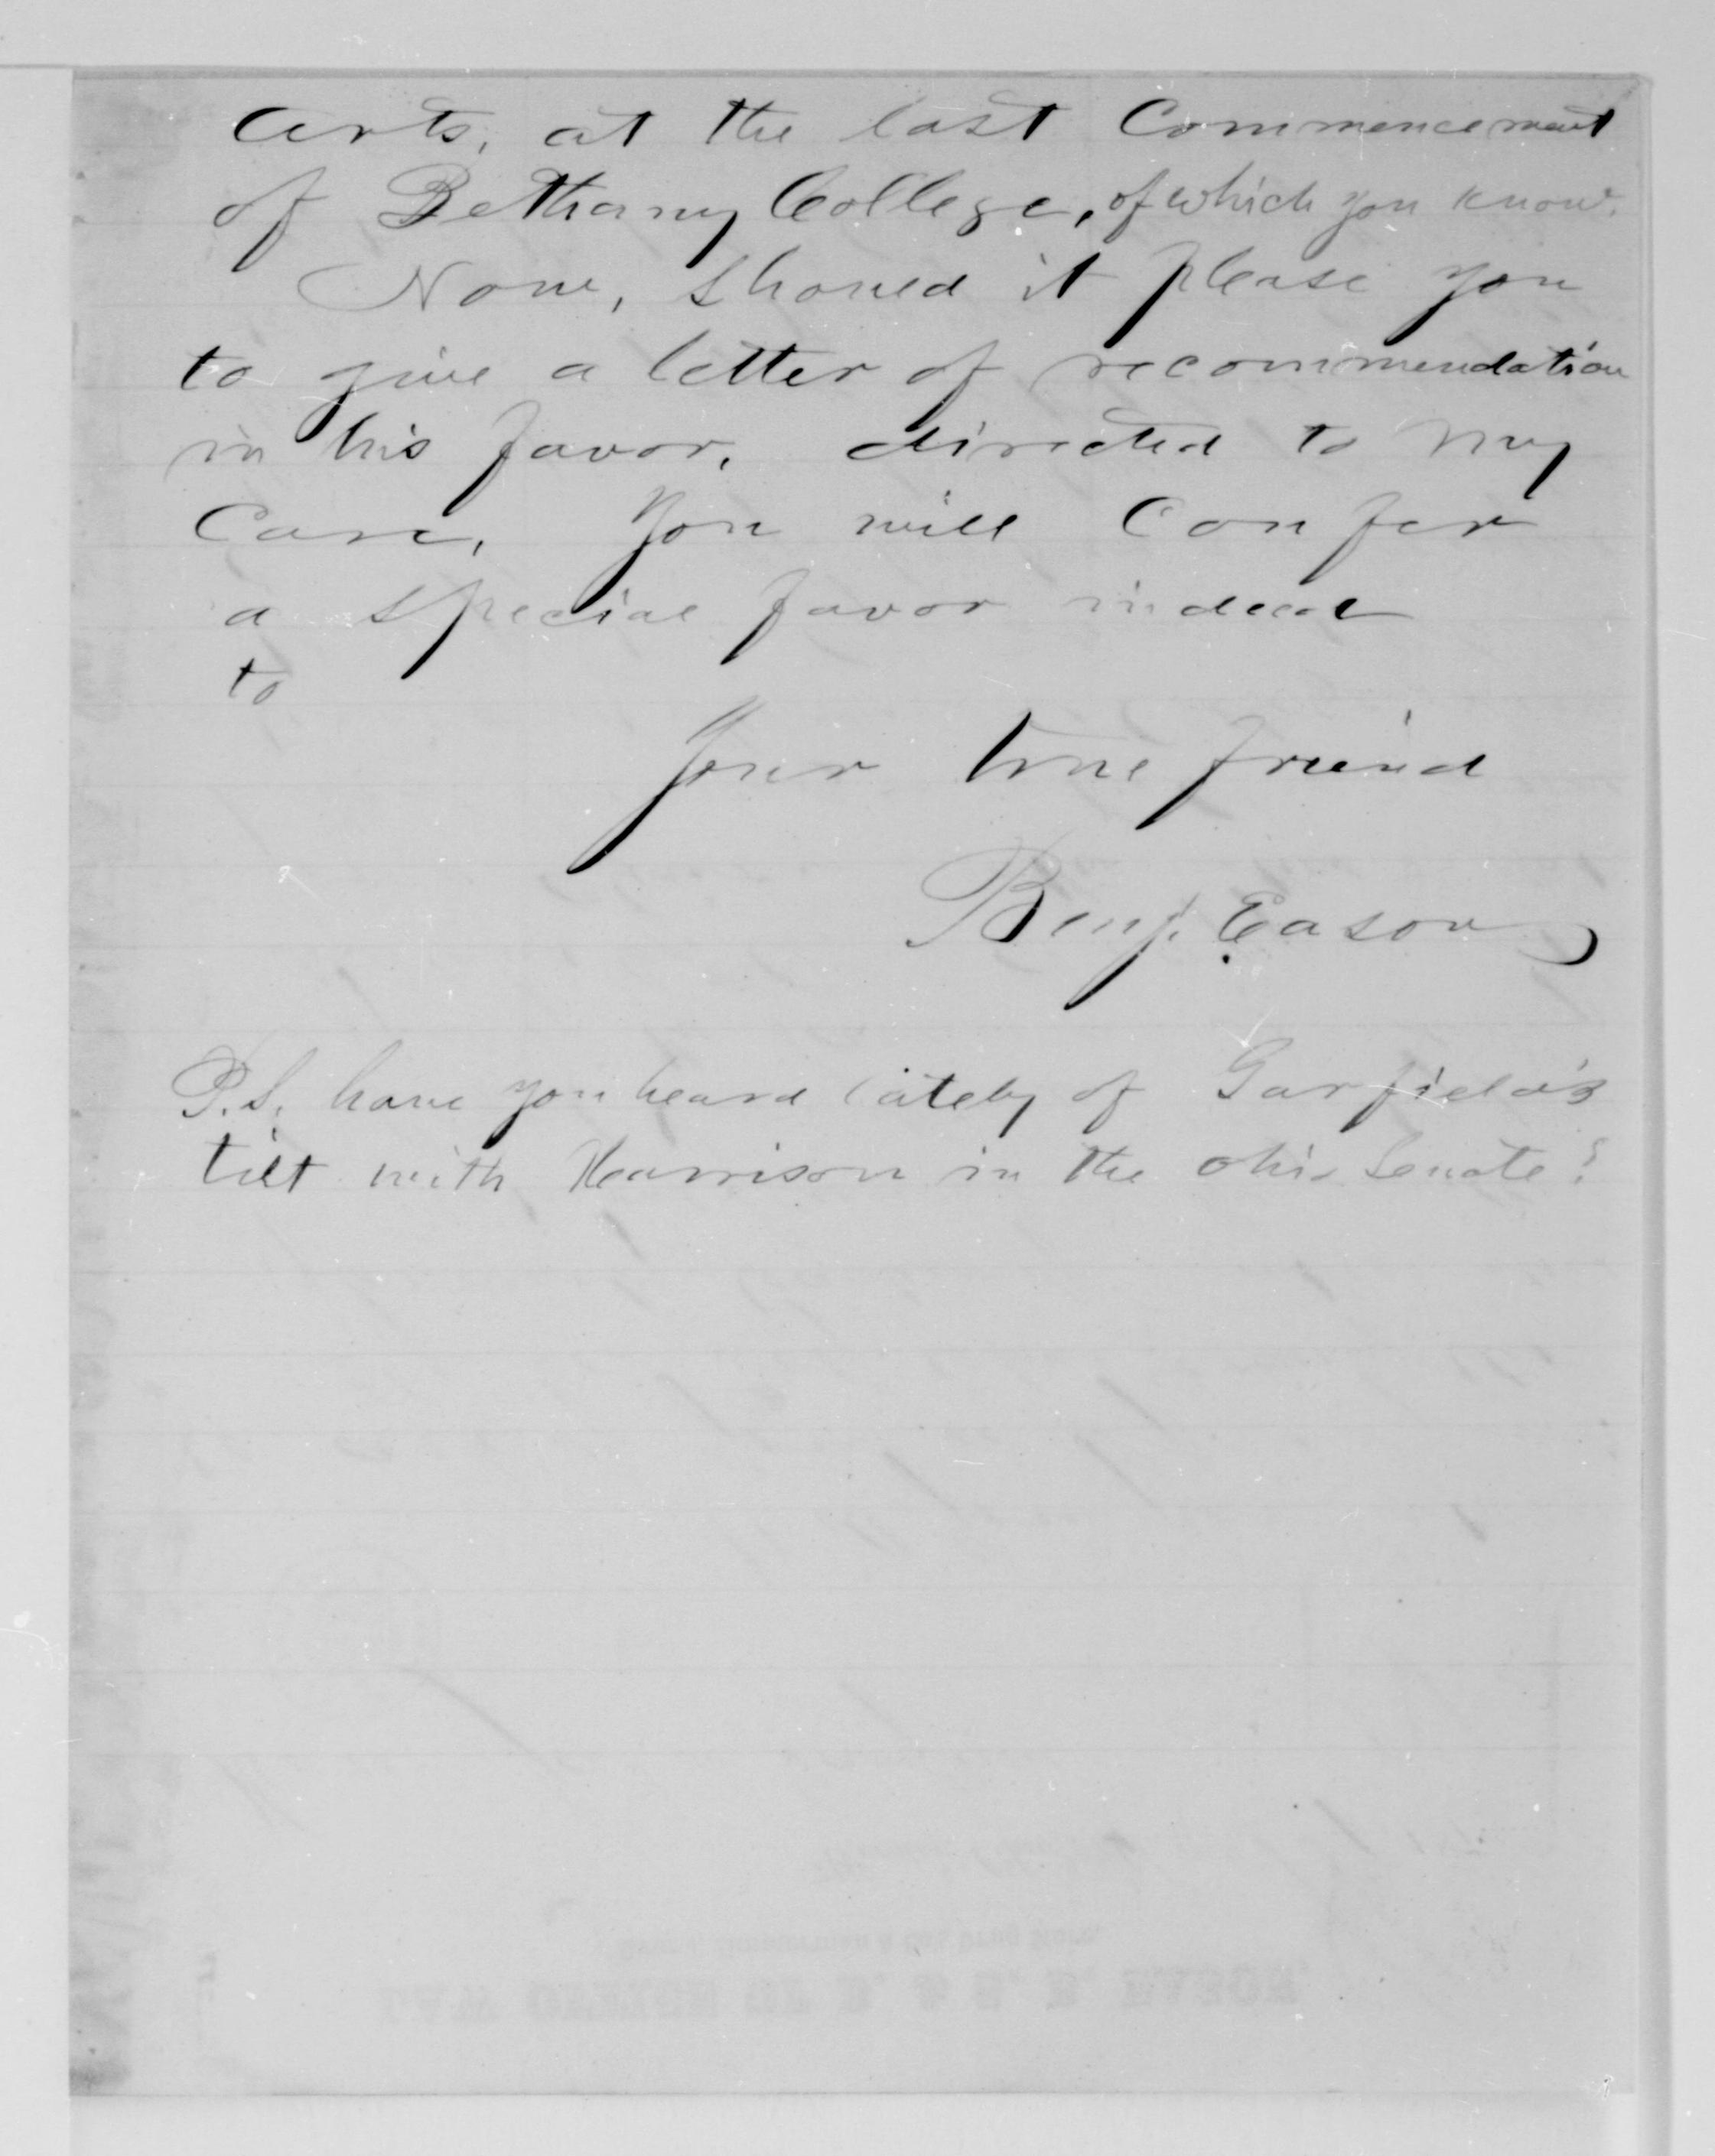 Arts, at the last Commencement
of Bethany College, of which you know.
Now, should it please you
to give a letter of recommendation
in his favor, directed to my
Care, you will Confer
a special favor indeed
to
Your true friend
Benj. Eason
P.S. have you heard lately of Garfield's
tilt with Harrison in the ohio Senate?